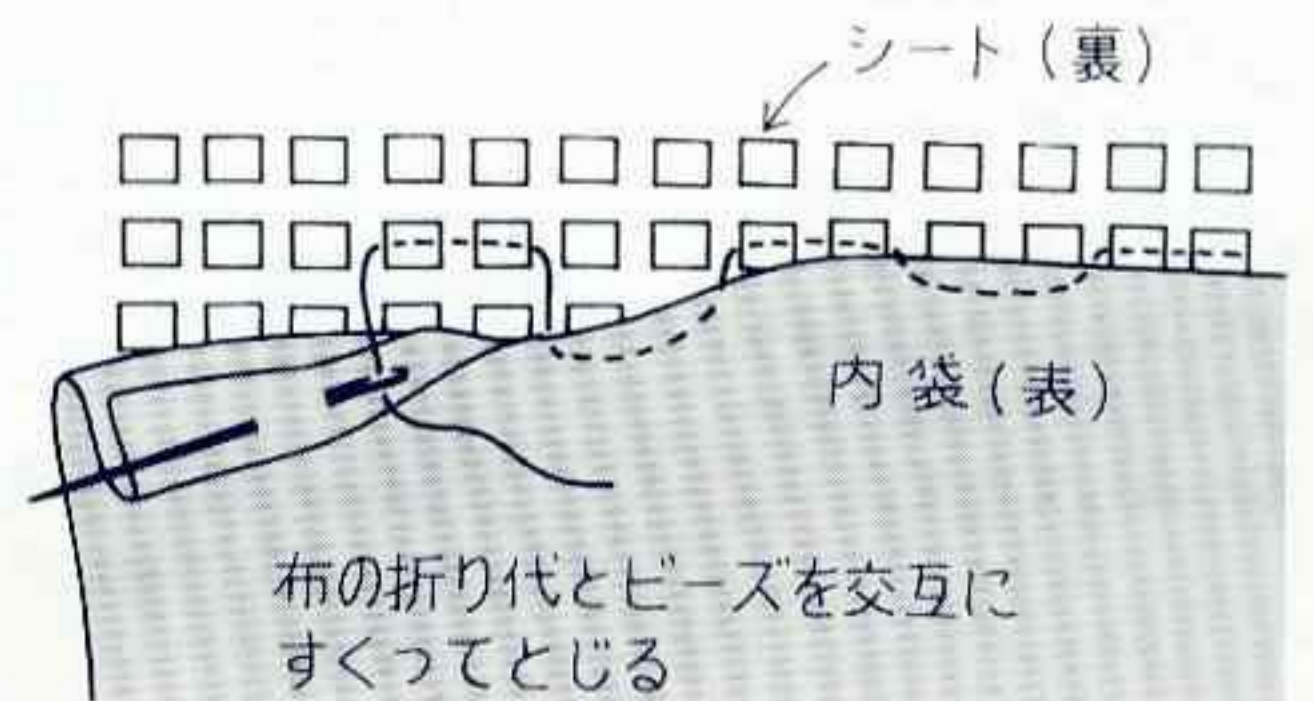 シート（裏）
内袋（表）
布の折り代とビーズを交互に
すくってとじる